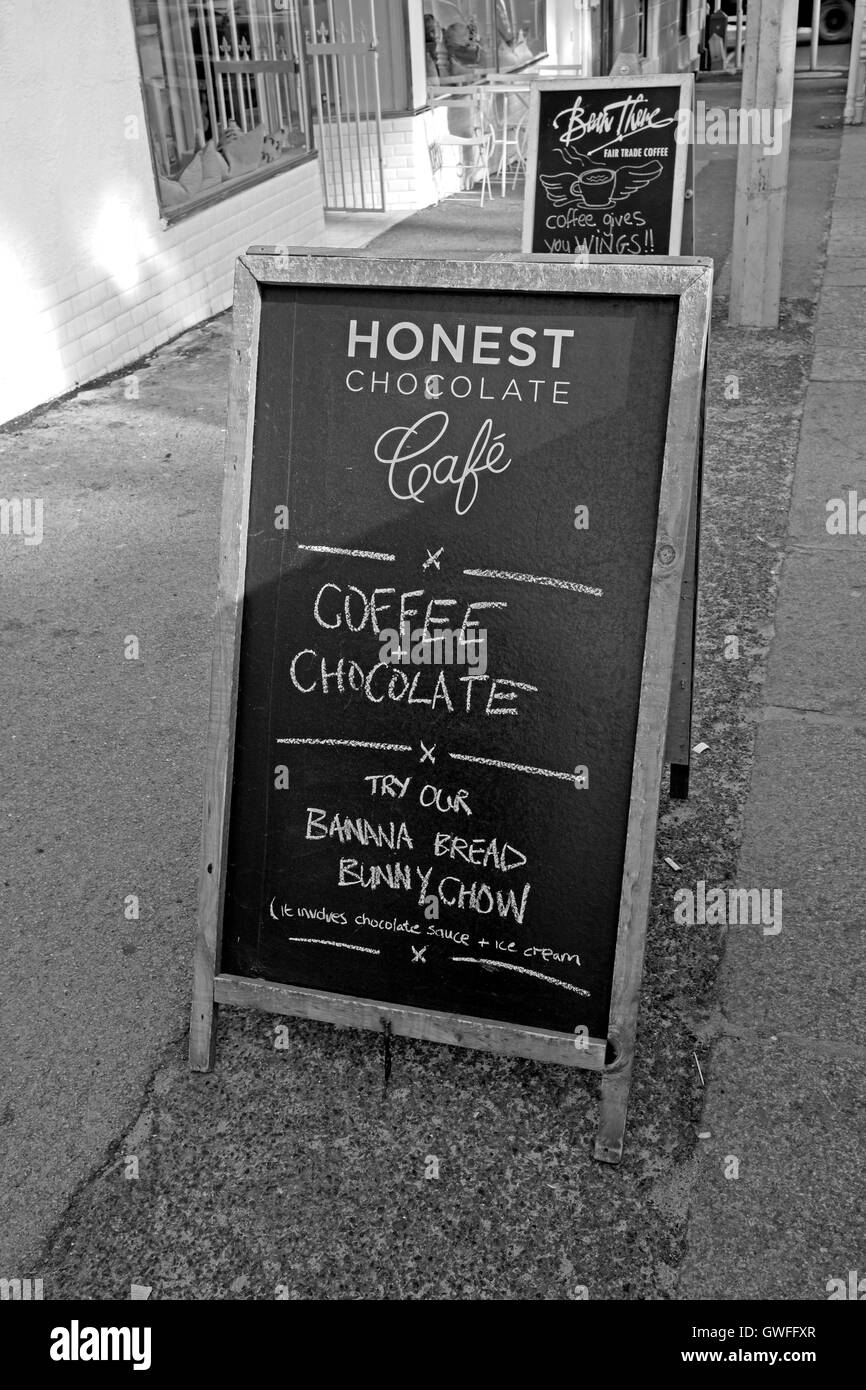 Bean There
FAIR TRADE COFFEE
coffee gives
you WINGS!!
HONEST
CHOCOLATE
Café
COFFEE
+
CHOCOLATE
TRY OUR
BANANA BREAD
BUNNY CHOW
(it involves chocolate sauce + ice cream
alamy
Image ID: GWFFXR
www.alamy.com